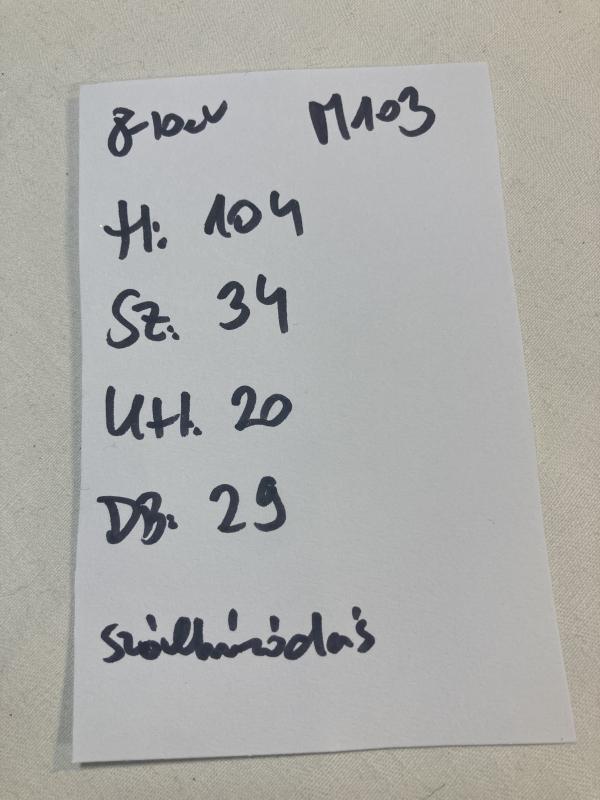 M103
H: 104
Sz: 34
UH. 20
DB: 29
szálhúzódás